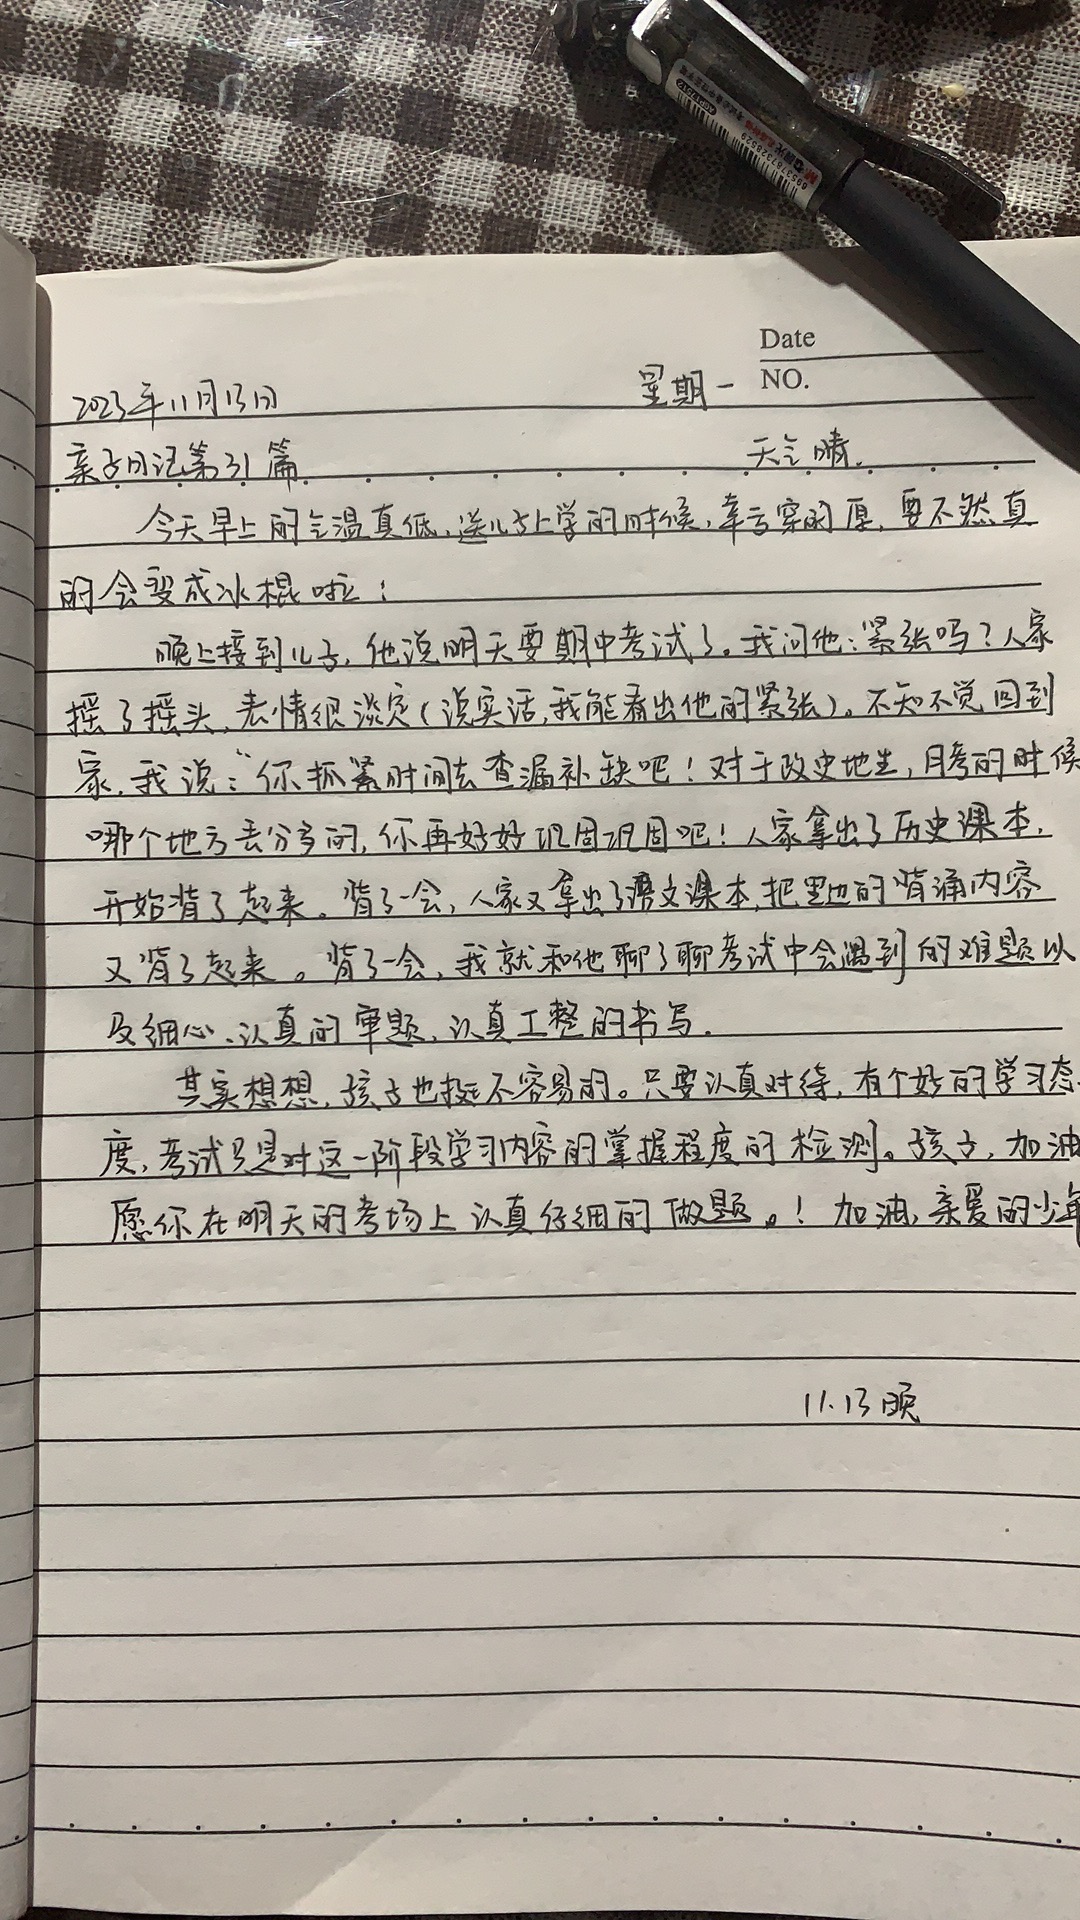 晨光
AGP17512
6953787328529
Date
NO.
2023年11月13日 星期一
亲子日记第31篇 天气晴.
今天早上的气温真低,送儿子上学的时候,幸亏穿的厚,要不然真
的会变成冰棍啦!
晚上接到儿子,他说明天要期中考试了。我问他:紧张吗?人家
摇了摇头,表情很淡定(说实话,我能看出他的紧张)。不知不觉回到
家,我说:“你抓紧时间去查漏补缺吧!对于政史地生,月考的时候
哪个地方丢分多的,你再好好巩固巩固吧!人家拿出了历史课本,
开始背了起来。背了一会,人家又拿出了语文课本,把里边的背诵内容
又背了起来。背了一会,我就和他聊了聊考试中会遇到的难题以
及细心、认真的审题,认真工整的书写.
其实想想,孩子也挺不容易的。只要认真对待,有个好的学习态
度,考试只是对这一阶段学习内容的掌握程度的检测。孩子,加油
愿你在明天的考场上认真仔细的做题。!加油,亲爱的少年
11.13晚